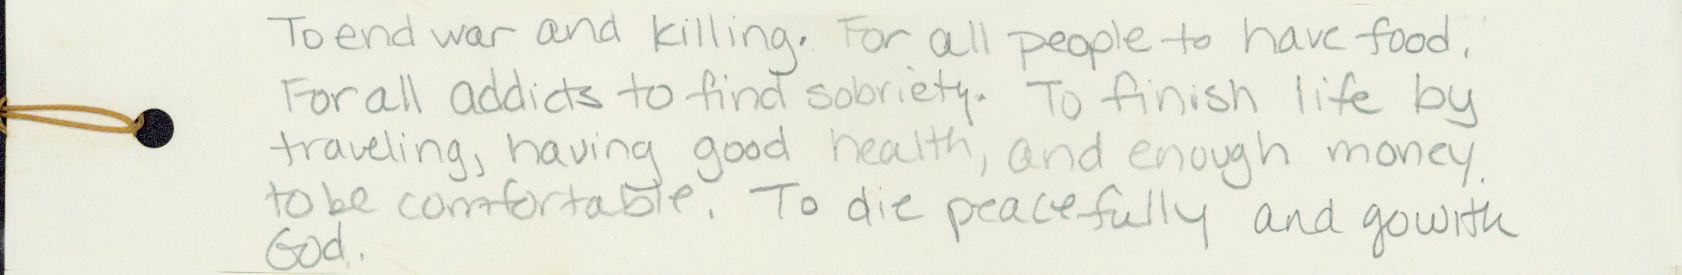 To end war and killing. For all people to have food.
For all addicts to find sobriety. To finish life by
traveling, having good health, and enough money
to be comfortable. To die peacefully and go with
God.